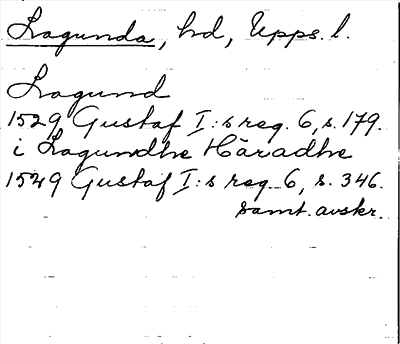 Lagunda, hd, Upps. l.
Lagund
1529 Gustaf I:s reg. 6, s. 179.
i Lagundhe Häradhe
1529 Gustaf I:s reg. 6, s. 346.
samt. avskr.